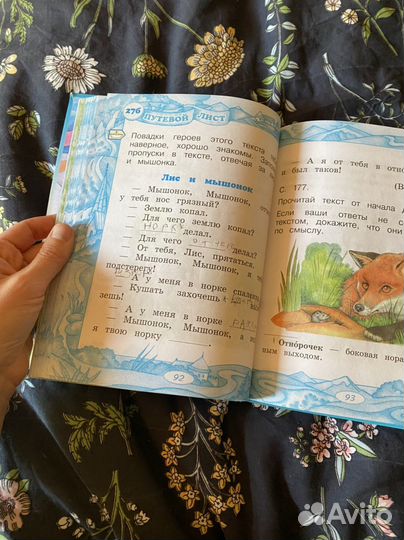 276
ПУТЕВОЙ ЛИСТ
Повадки героев этого текста
наверное, хорошо знакомы. За
пропуски в тексте, отвечая за
и мышонка.
Лис и мышонок
— Мышонок, Мышонок,
у тебя нос грязный?
— Землю копал.
— Для чего землю копал?
— НОРКУ делал.
— Для чего делал?
— От тебя, Лис, прятаться.
— Мышонок, Мышонок, я т
подстерегу!
— А у меня в норке спаленка
— Кушать захочешь
зешь!
— А у меня в норке
— Мышонок, Мышонок, а
я твою норку
92
— А я от тебя в отно
и был таков!
(В
С. 177.
Прочитай текст от начала
Если ваши ответы не с
текстом, докажите, что они
по смыслу.
1 Отнорочек — боковая нора
ным выходом.
93
Avito